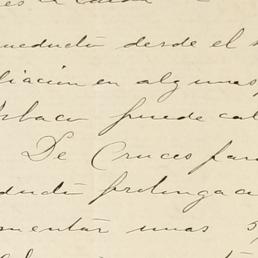 ueducto desde el s
liación en algunas
Islaco puede cal
De Cruces para
ducto prolongaci
mentar unas 5